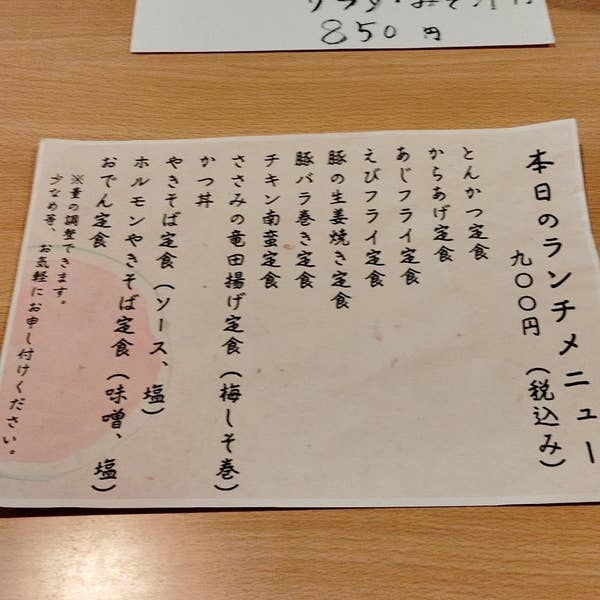 サラダ・みそ汁付
850円
本日のランチメニュー
九〇〇円（税込み）
とんかつ定食
からあげ定食
あじフライ定食
えびフライ定食
豚の生姜焼き定食
豚バラ巻き定食
チキン南蛮定食
ささみの竜田揚げ定食（梅しそ巻）
かつ丼
やきそば定食（ソース、塩）
ホルモンやきそば定食（味噌、塩）
おでん定食
※量の調整できます。
少なめ等、お気軽にお申し付けください。